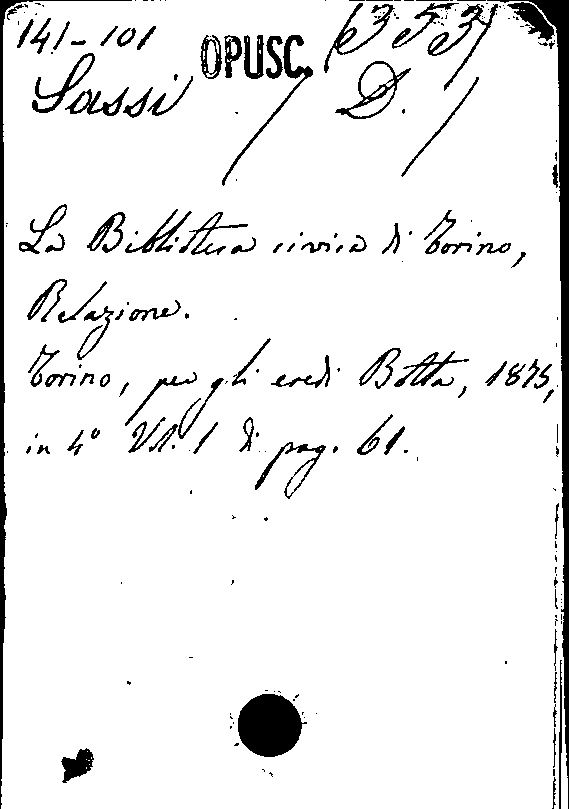 141-101 OPUSC. (353)
Sassi (D.)
La Biblioteca civica di Torino,
Relazione.
Torino, per gli eredi Botta, 1875,
in 4° Vol. 1 di pag. 61.